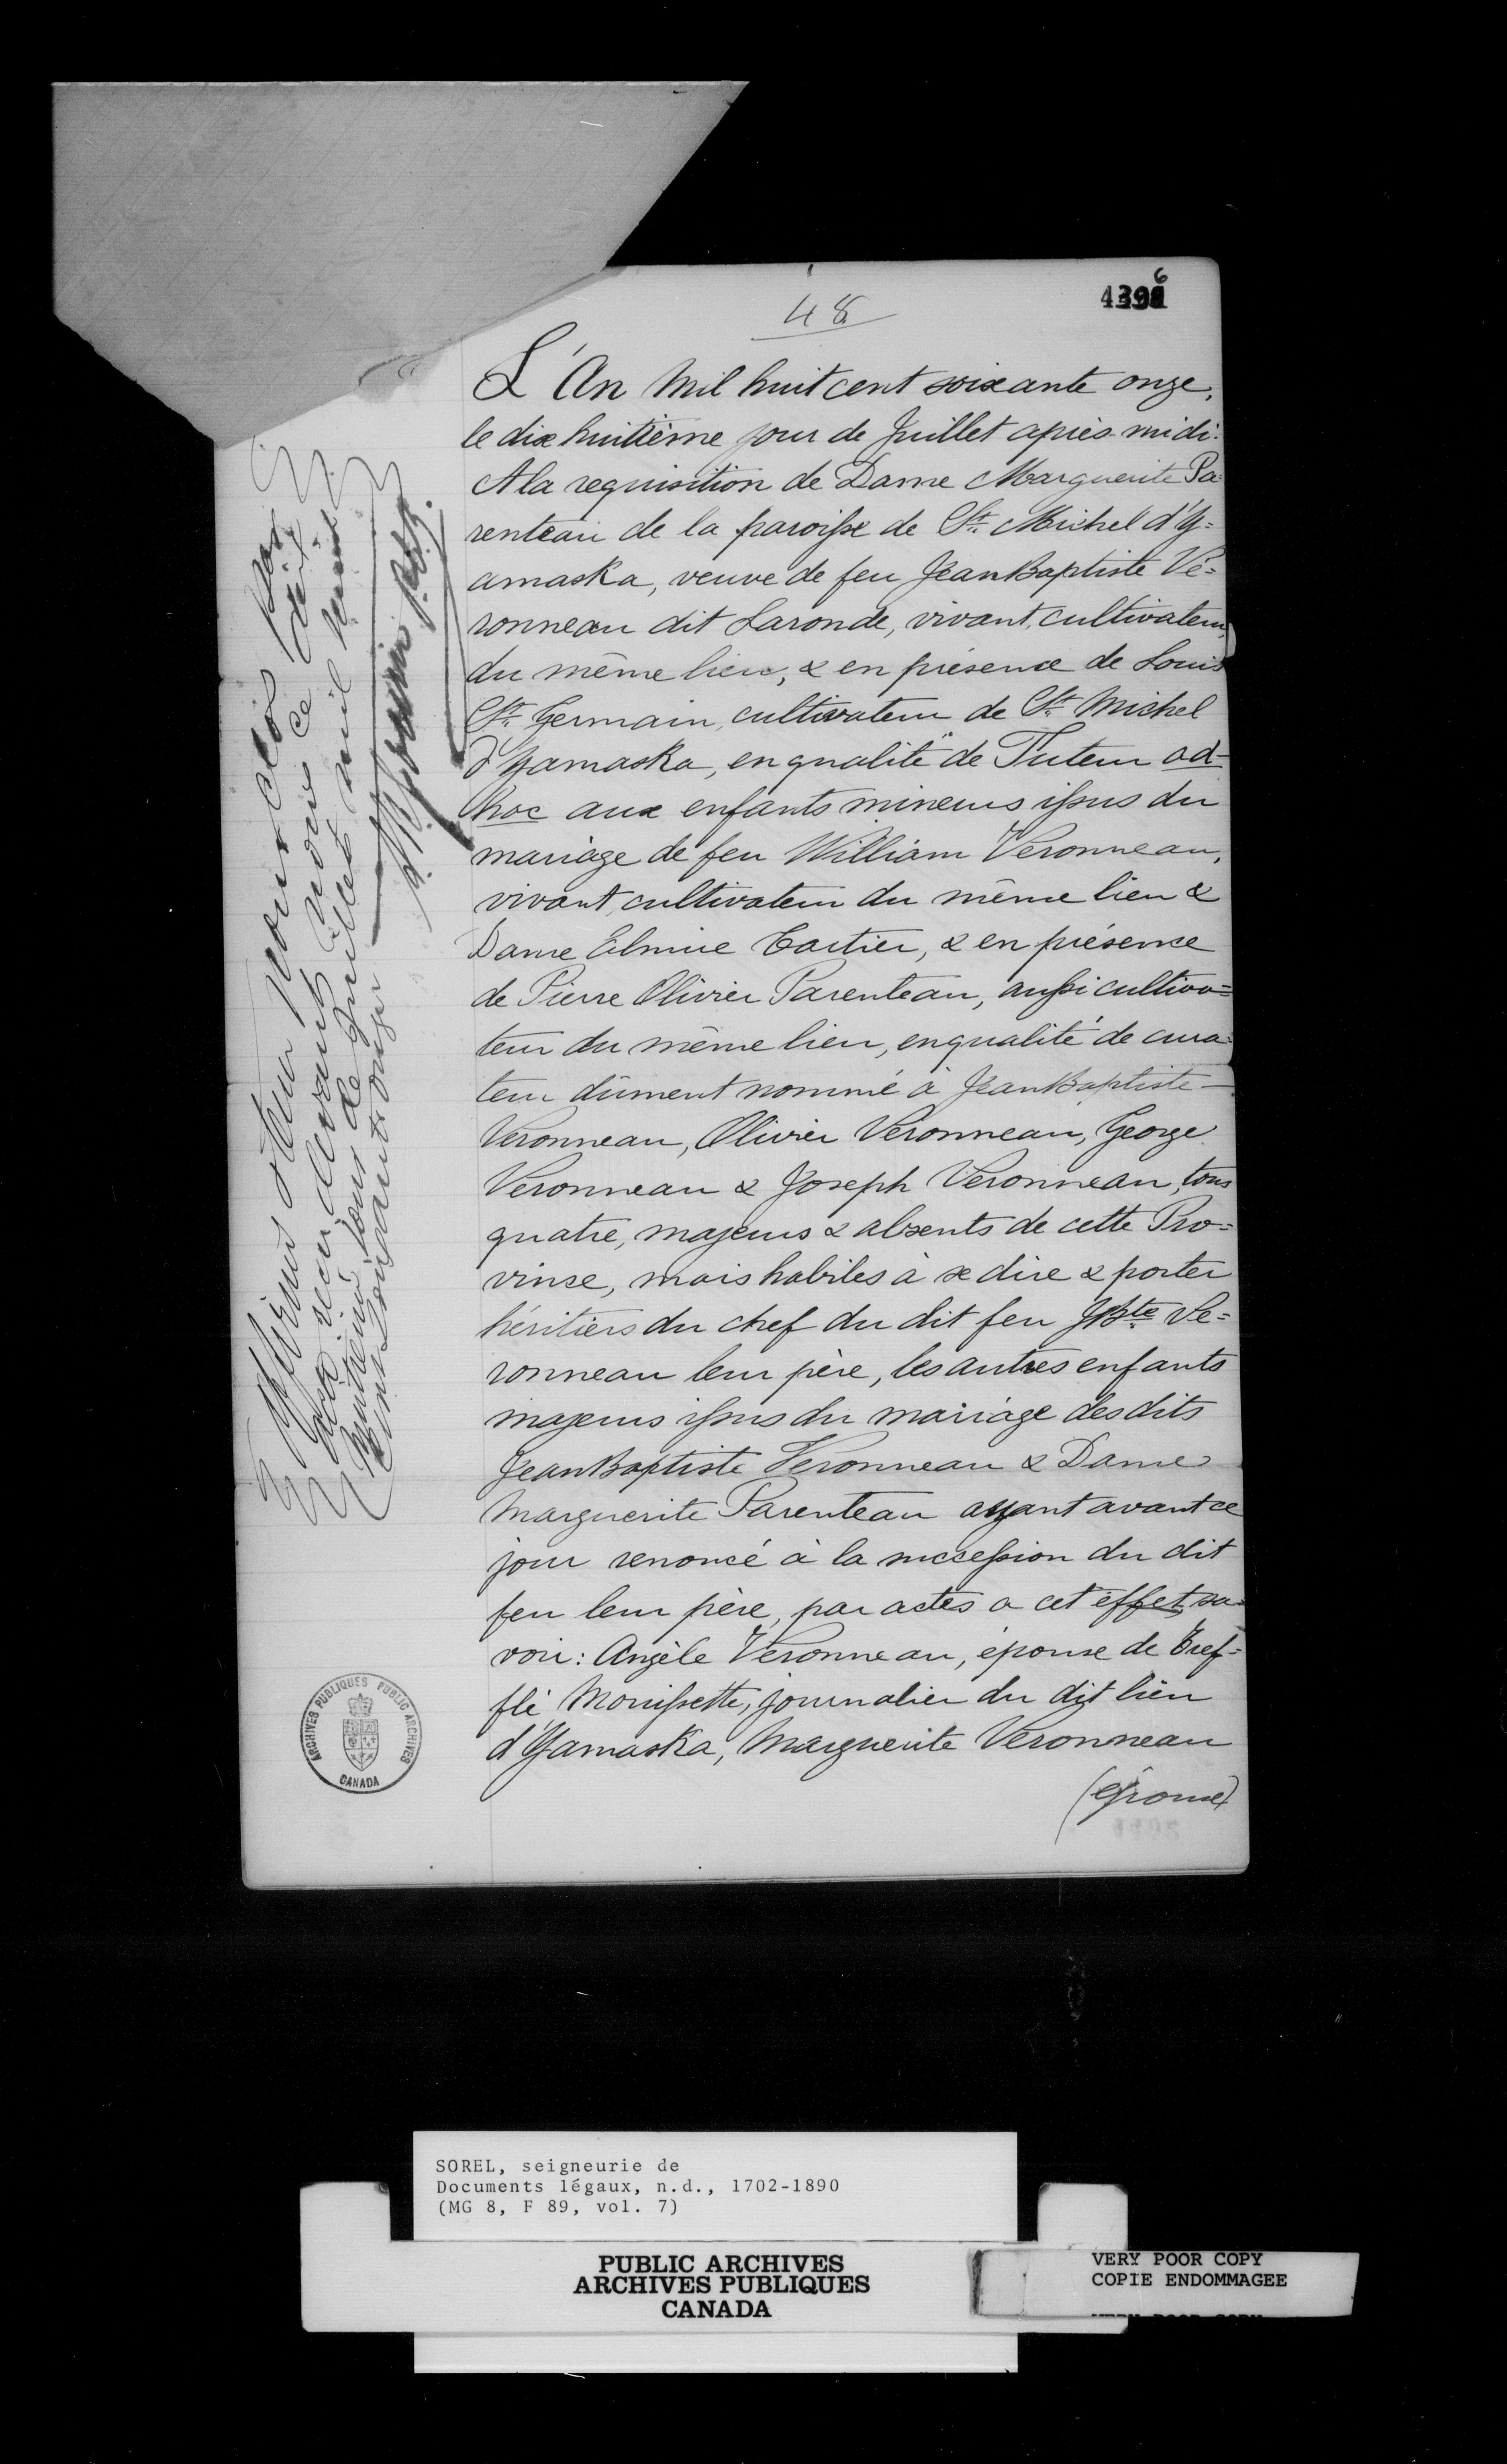 48
4396
L'An Mil huit cent soixante onze,
le dix huitième jour de Juillet après-midi.
A la requisition de Dame Marguerite Pa=
renteau de la paroisse de St. Michel d'Y=
amaska, veuve de feu Jean Baptiste Vé=
ronneau dit Laronde, vivant, cultivateur,
du même lieu, & en présence de Louis
St. Germain, cultivateur de St. Michel
d'Yamaska, en qualité de Tuteur ad-
hoc aux enfants mineurs issus du
mariage de feu William Veronneau,
vivant, cultivateur du même lieu &
Dame Elmire Cartier, & en présence
de Pierre Olivier Parenteau, aussi cultiva=
teur du même lieu, en qualité de cura=
teur dûment nommé à Jean Baptiste
Veronneau, Olivier Veronneau, George
Veronneau & Joseph Veronneau, tous
quatre, majeurs & absents de cette Pro=
vince, mais habiles à se dire & porter
héritiers du chef du dit feu JBte. Ve=
ronneau leur père, les autres enfants
majeurs issus du mariage des dits
Jean Baptiste Veronneau & Dame
Marguerite Parenteau ayant avant ce
jour renoncé à la succession du dit
feu leur père, par actes a cet effet, sa=
voir: Angèle Veronneau, épouse de Tref=
flé Morissette, journalier du dit lieu
d'Yamaska, Marguerite Veronneau
(épouse)
pour clos par
devant ce dix
huitième jour de Juillet mil huit
cent soixante onze
ARCHIVES PUBLIQUES PUBLIC ARCHIVES
CANADA
SOREL, seigneurie de
Documents légaux, n.d., 1702-1890
(MG 8, F 89, vol. 7)
PUBLIC ARCHIVES
ARCHIVES PUBLIQUES
CANADA
VERY POOR COPY
COPIE ENDOMMAGEE
VERY POOR COPY